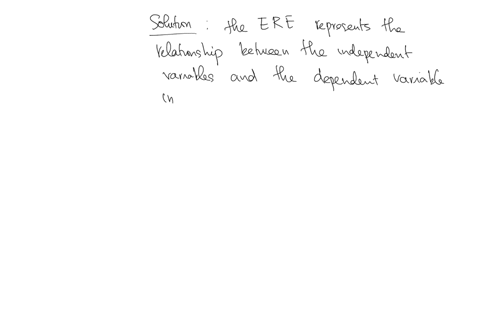 Solution : the ERE represents the
relationship between the independent
variables and the dependent variable
in